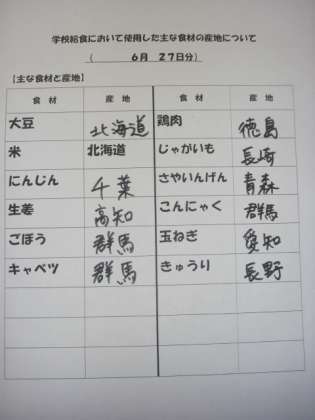 学校給食において使用した主な食材の産地について
( 6月 27日分)
【主な食材と産地】
食 材 産 地 食 材 産 地
大豆 北海道 鶏肉 徳島
米 北海道 じゃがいも 長崎
にんじん 千葉 さやいんげん 青森
生姜 高知 こんにゃく 群馬
ごぼう 群馬 玉ねぎ 愛知
キャベツ 群馬 きゅうり 長野